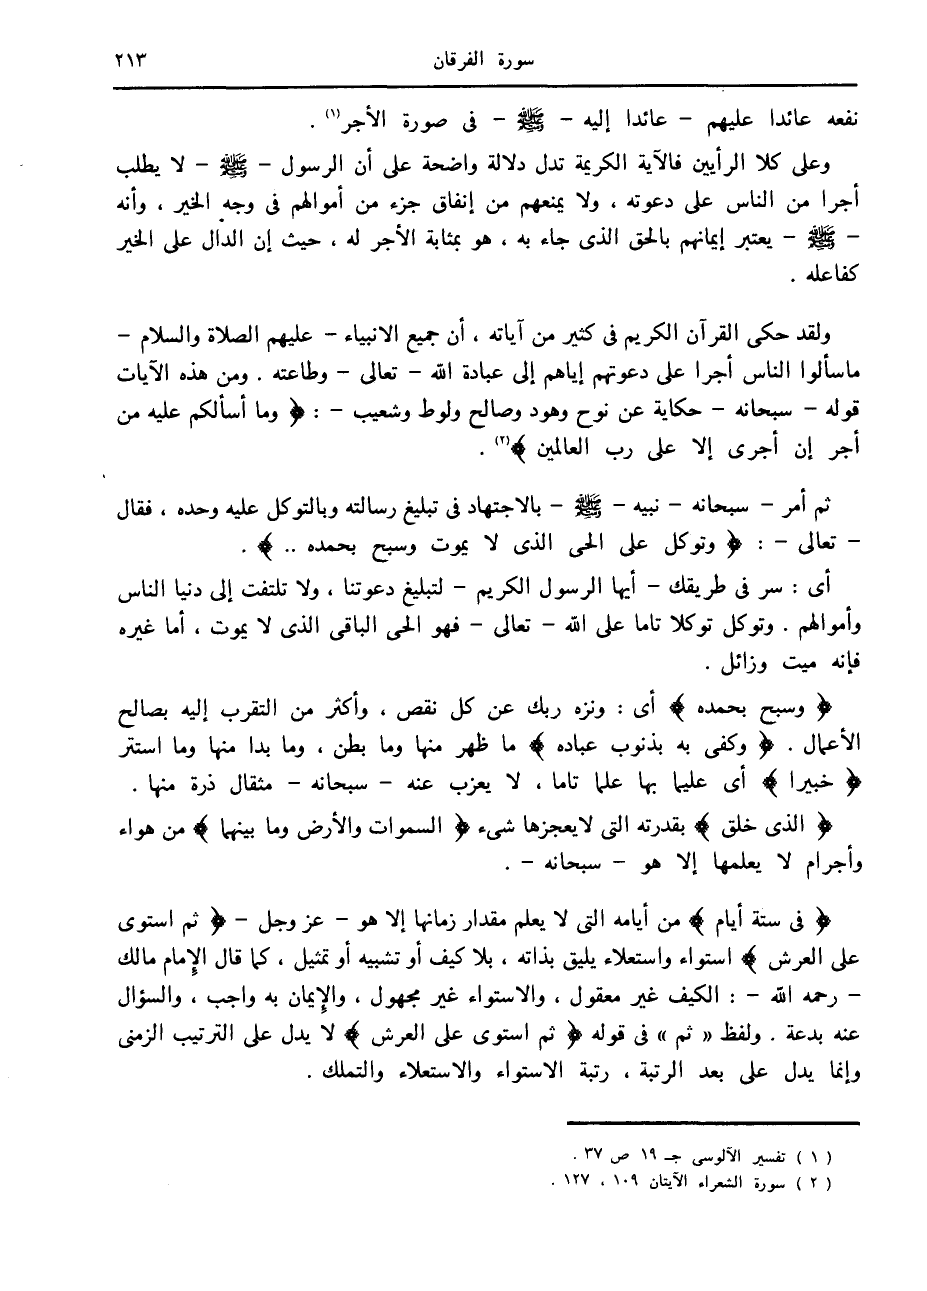 سورة الفرقان ٢١٣
نفعه عائدا عليهم – عائدا إليه – ﷺ – فى صورة الأجر(١) .
وعلى كلا الرأيين فالآية الكريمة تدل دلالة واضحة على أن الرسول – ﷺ – لا يطلب
أجرا من الناس على دعوته ، ولا يمنعهم من إنفاق جزء من أموالهم فى وجه الخير ، وأنه
– ﷺ – يعتبر إيمانهم بالحق الذى جاء به ، هو بمثابة الأجر له ، حيث إن الدال على الخير
كفاعله .
ولقد حكى القرآن الكريم فى كثير من آياته ، أن جميع الانبياء – عليهم الصلاة والسلام –
ماسألوا الناس أجرا على دعوتهم إياهم إلى عبادة الله – تعالى – وطاعته . ومن هذه الآيات
قوله – سبحانه – حكاية عن نوح وهود وصالح ولوط وشعيب – : ﴿ وما أسألكم عليه من
أجر إن أجرى إلا على رب العالمين ﴾(٢) .
ثم أمر – سبحانه – نبيه – ﷺ – بالاجتهاد فى تبليغ رسالته وبالتوكل عليه وحده ، فقال
– تعالى – : ﴿ وتوكل على الحى الذى لا يموت وسبح بحمده .. ﴾ .
أى : سر فى طريقك – أيها الرسول الكريم – لتبليغ دعوتنا ، ولا تلتفت إلى دنيا الناس
وأموالهم . وتوكل توكلا تاما على الله – تعالى – فهو الحى الباقى الذى لا يموت ، أما غيره
فإنه ميت وزائل .
﴿ وسبح بحمده ﴾ أى : ونزه ربك عن كل نقص ، وأكثر من التقرب إليه بصالح
الأعمال . ﴿ وكفى به بذنوب عباده ﴾ ما ظهر منها وما بطن ، وما بدا منها وما استتر
﴿ خبيرا ﴾ أى عليما بها علما تاما ، لا يعزب عنه – سبحانه – مثقال ذرة منها .
﴿ الذى خلق ﴾ بقدرته التى لايعجزها شىء ﴿ السموات والأرض وما بينهما ﴾ من هواء
وأجرام لا يعلمها إلا هو – سبحانه – .
﴿ فى ستة أيام ﴾ من أيامه التى لا يعلم مقدار زمانها إلا هو – عز وجل – ﴿ ثم استوى
على العرش ﴾ استواء واستعلاء يليق بذاته ، بلا كيف أو تشبيه أو تمثيل ، كما قال الإمام مالك
– رحمه الله – : الكيف غير معقول ، والاستواء غير مجهول ، والإيمان به واجب ، والسؤال
عنه بدعة . ولفظ « ثم » فى قوله ﴿ ثم استوى على العرش ﴾ لا يدل على الترتيب الزمنى
وإنما يدل على بعد الرتبة ، رتبة الاستواء والاستعلاء والتملك .
( ١ ) تفسير الآلوسى جـ ١٩ ص ٣٧ .
( ٢ ) سورة الشعراء الآيتان ١٠٩ ، ١٢٧ .